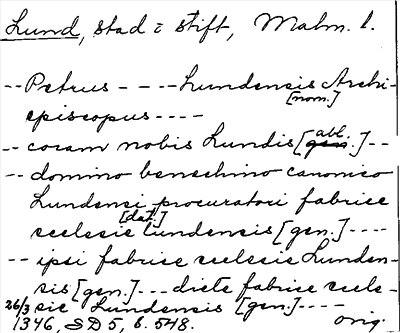 Lund, stad i stift, Malm. l.
-- Petrus - - - - Lundensis Archi-
[nom.]
episcopus - - - -
-- coram nobis Lundis [gen. abl.] --
-- domino benechino canonico
Lundensi procuratori fabrice
[dat.]
ecclesie lundensis [gen.] ----
-- ipsi fabrice ecclesie Lunden-
sis [gen.] --- dicte fabrice eccle-
26/3 sie Lundensis [gen.] ----
1346, SD 5, s. 548. orig.